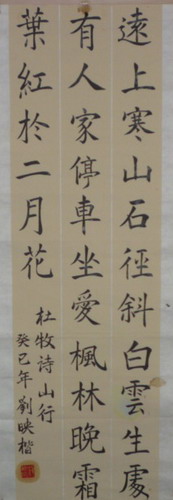 遠上寒山石徑斜白雲生處
有人家停車坐愛楓林晚霜
葉紅於二月花
杜牧詩山行
癸巳年劉映楷